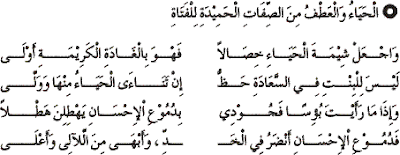 الْحَيَاءُ وَالْعَطْفُ مِنَ الصِّفَاتِ الْحَمِيْدَةِ لِلْفَتَاةِ
وَاجْعَلْ شِيْمَةَ الْحَيَاءِ خِصَالاً فَهْوَ بِالْغَادَةِ الْكَرِيْمَةِ أَوْلَى
لَيْسَ لِلْبِنْتِ فِي السَّعَادَةِ حَظٌّ إِنْ تَنَاءَى الْحَيَاءُ مِنْهَا وَوَلَّى
وَإِذَا مَا رَأَيْتِ بُؤْسًا فَجُوْدِي بِدُمُوْعِ الْإِحْسَانِ يَهْطِلْنَ هَطْلاً
فَدُمُوْعُ الْإِحْسَانِ أَنْضَرُ فِي الْخَـ ـدِّ، وَأَبْهَى مِنَ اللآلِي وَأَغْلَى